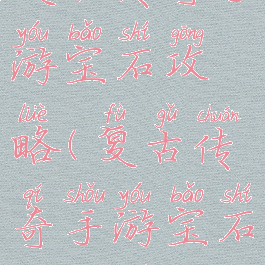 yóu bǎo shí gōng
游宝石攻
lüè fù gǔ chuán
略(复古传
qí shǒu yóu bǎo shí
奇手游宝石